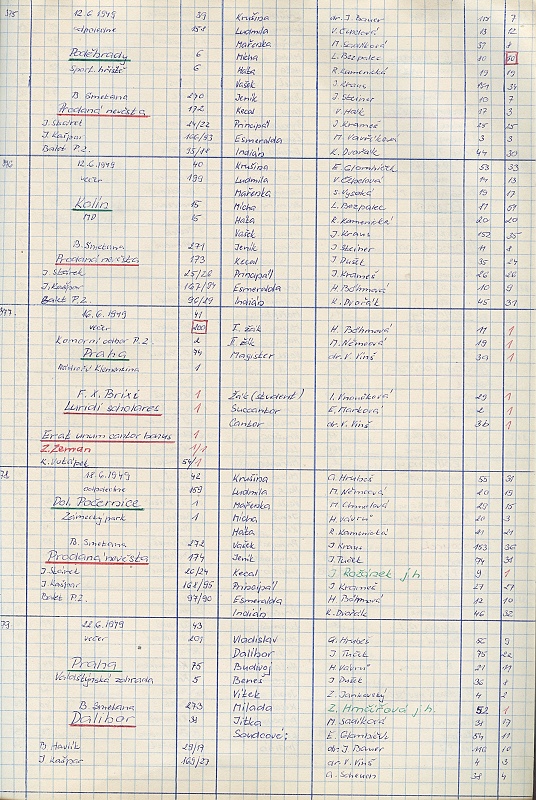 12.6.1949 39 Krušina dr. J. Bauer 7
odpoledne 151 Ludmila 13 12
Mařenka 8
Poděbrady 6 Mícha L. Bezpalec 10 50
Sport. hřiště 6 Háta R. Kamenická 19 19
Vašek J. Kraus 151 34
B. Smetana 270 Jeník J. Steiner 10 7
Prodaná nevěsta 172 Kecal V. Halk 17 3
24/22 Principál J. Krameš 25 25
J. Kašpar 166/93 Esmeralda M. Vavříková 3 3
Balet P.Z. 95/88 Indián K. Dvořák 44 30
12.6.1949 40 Krušina E. Glombíček 53 33
večer 199 Ludmila V. Čepelová 14 13
Mařenka S. Vysoká 19 17
Kolín 15 Mícha L. Bezpalec 11 51
MD 15 Háta R. Kamenická 20 20
Vašek J. Kraus 152 35
B. Smetana 271 Jeník J. Steiner 11 8
Prodaná nevěsta 173 Kecal J. Dušek 35 24
25/23 Principál J. Krameš 26 26
J. Kašpar 167/94 Esmeralda H. Böhmová 10 9
Balet P.Z. 96/89 Indián K. Dvořák 45 31
16.6.1949 41
večer 200 I. žák H. Böhmová 11 1
Komorní odbor P.Z. 2 II. žák M. Němcová 19 1
Praha 74 Magister dr. V. Vinš 3a 1
Nádvoří Klementina 1
F. X. Brixi 1 Žák (student) 29 1
Luridi scholares 1 Succantor E. Marková 2 1
Cantor dr. V. Vinš 3b 1
Erat unum cantor bonus 1
Z. Zeman 1/1
54/1
18.6.1949 42 Krušina O. Hrubeš 55 31
odpoledne 159 Ludmila M. Němcová 20 15
Dol. Počernice 1 Mařenka M. Chmelová 29 15
Zámecký park 1 Mícha H. Vávrů 20 3
Háta R. Kamenická 21 21
B. Smetana 272 Vašek J. Kraus 153 36
Prodaná nevěsta 174 Jeník J. Tuček 74 31
26/24 Kecal J. Rožánek j.h. 9 1
J. Kašpar 168/95 Principál J. Krameš 27 27
Balet P.Z. 97/90 Esmeralda H. Böhmová 12 10
Indián K. Dvořák 46 32
22.6.1949 43
večer 201 Vladislav O. Hrubeš 56 9
Dalibor J. Tuček 75 22
Praha 75 Budivoj H. Vávrů 21 11
Valdštýnská zahrada 5 Beneš J. Dušek 36 8
Vítek Z. Jankovský 4 2
B. Smetana 273 Milada Z. Hrnčířová j.h. 52 1
Dalibor 31 Jitka M. Sadíková 31 17
Soudcové: E. Glombíček 54 11
B. Havlík 29/19 dr. J. Bauer 118 10
J. Kašpar 169/27 dr. V. Vinš 4 3
O. Scheuch 38 4